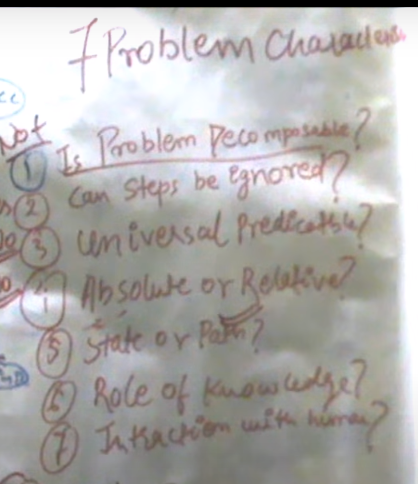 7 Problem Characters
Not
1 Is Problem Decomposable?
2 Can Steps be Egnored?
3 Universal Predictable?
4 Absolute or Relative?
5 State or Path?
6 Role of Knowledge?
7 Intraction with human?